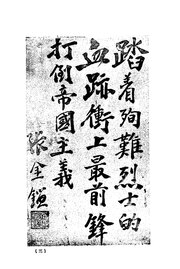 踏着殉難烈士的
血跡衝上最前鋒
打倒帝國主義
張金鎧